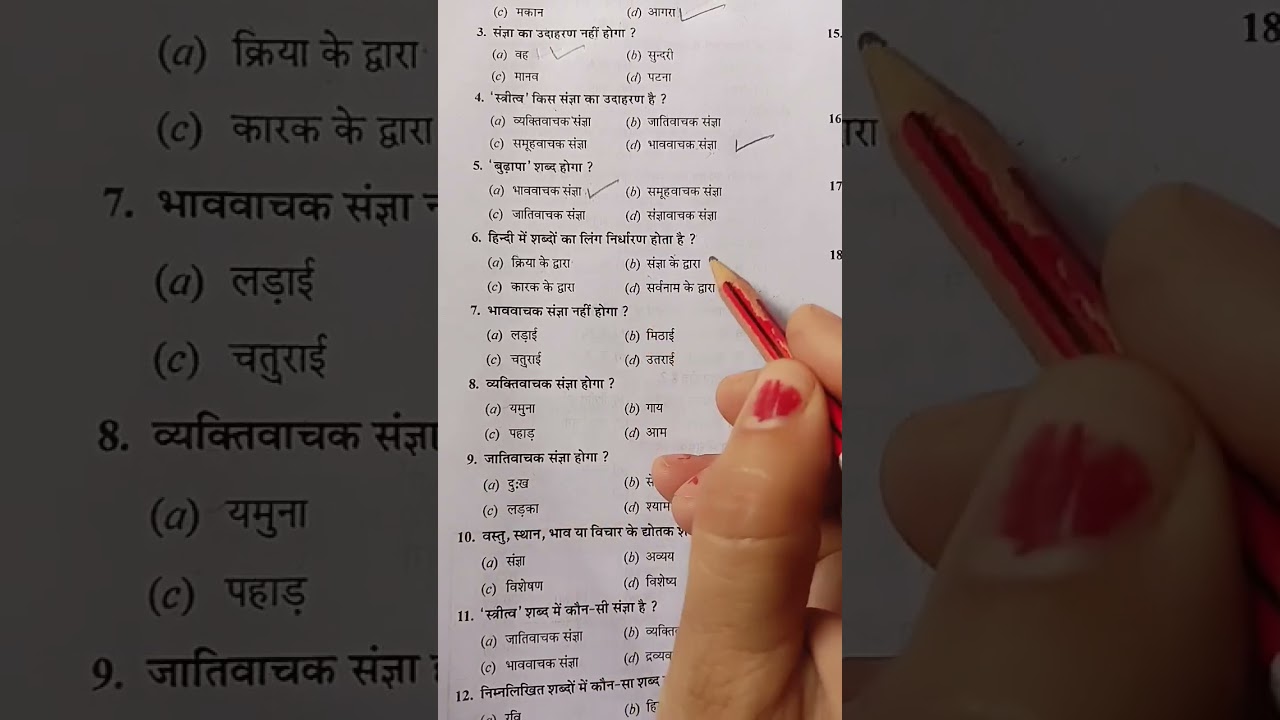 (c) मकान (d) आगरा
3. संज्ञा का उदाहरण नहीं होगा ?
(a) वह (b) सुन्दरी
(c) मानव (d) पटना
4. 'स्त्रीत्व' किस संज्ञा का उदाहरण है ?
(a) व्यक्तिवाचक संज्ञा (b) जातिवाचक संज्ञा
(c) समूहवाचक संज्ञा (d) भाववाचक संज्ञा
5. 'बुढ़ापा' शब्द होगा ?
(a) भाववाचक संज्ञा (b) समूहवाचक संज्ञा
(c) जातिवाचक संज्ञा (d) संज्ञावाचक संज्ञा
6. हिन्दी में शब्दों का लिंग निर्धारण होता है ?
(a) क्रिया के द्वारा (b) संज्ञा के द्वारा
(c) कारक के द्वारा (d) सर्वनाम के द्वारा
7. भाववाचक संज्ञा नहीं होगा ?
(a) लड़ाई (b) मिठाई
(c) चतुराई (d) उतराई
8. व्यक्तिवाचक संज्ञा होगा ?
(a) यमुना (b) गाय
(c) पहाड़ (d) आम
9. जातिवाचक संज्ञा होगा ?
(a) दुःख (b)
(c) लड़का (d) श्याम
10. वस्तु, स्थान, भाव या विचार के द्योतक
(a) संज्ञा (b) अव्यय
(c) विशेषण (d) विशेष्य
11. 'स्त्रीत्व' शब्द में कौन-सी संज्ञा है ?
(a) जातिवाचक संज्ञा (b)
(c) भाववाचक संज्ञा (d)
12. निम्नलिखित शब्दों में कौन-सा शब्द
(a) रवि (b)
15.
16
17
18
(a) क्रिया के द्वारा
(c) कारक के द्वारा
7. भाववाचक संज्ञा
(a) लड़ाई
(c) चतुराई
8. व्यक्तिवाचक संज्ञा
(a) यमुना
(c) पहाड़
9. जातिवाचक संज्ञा
18